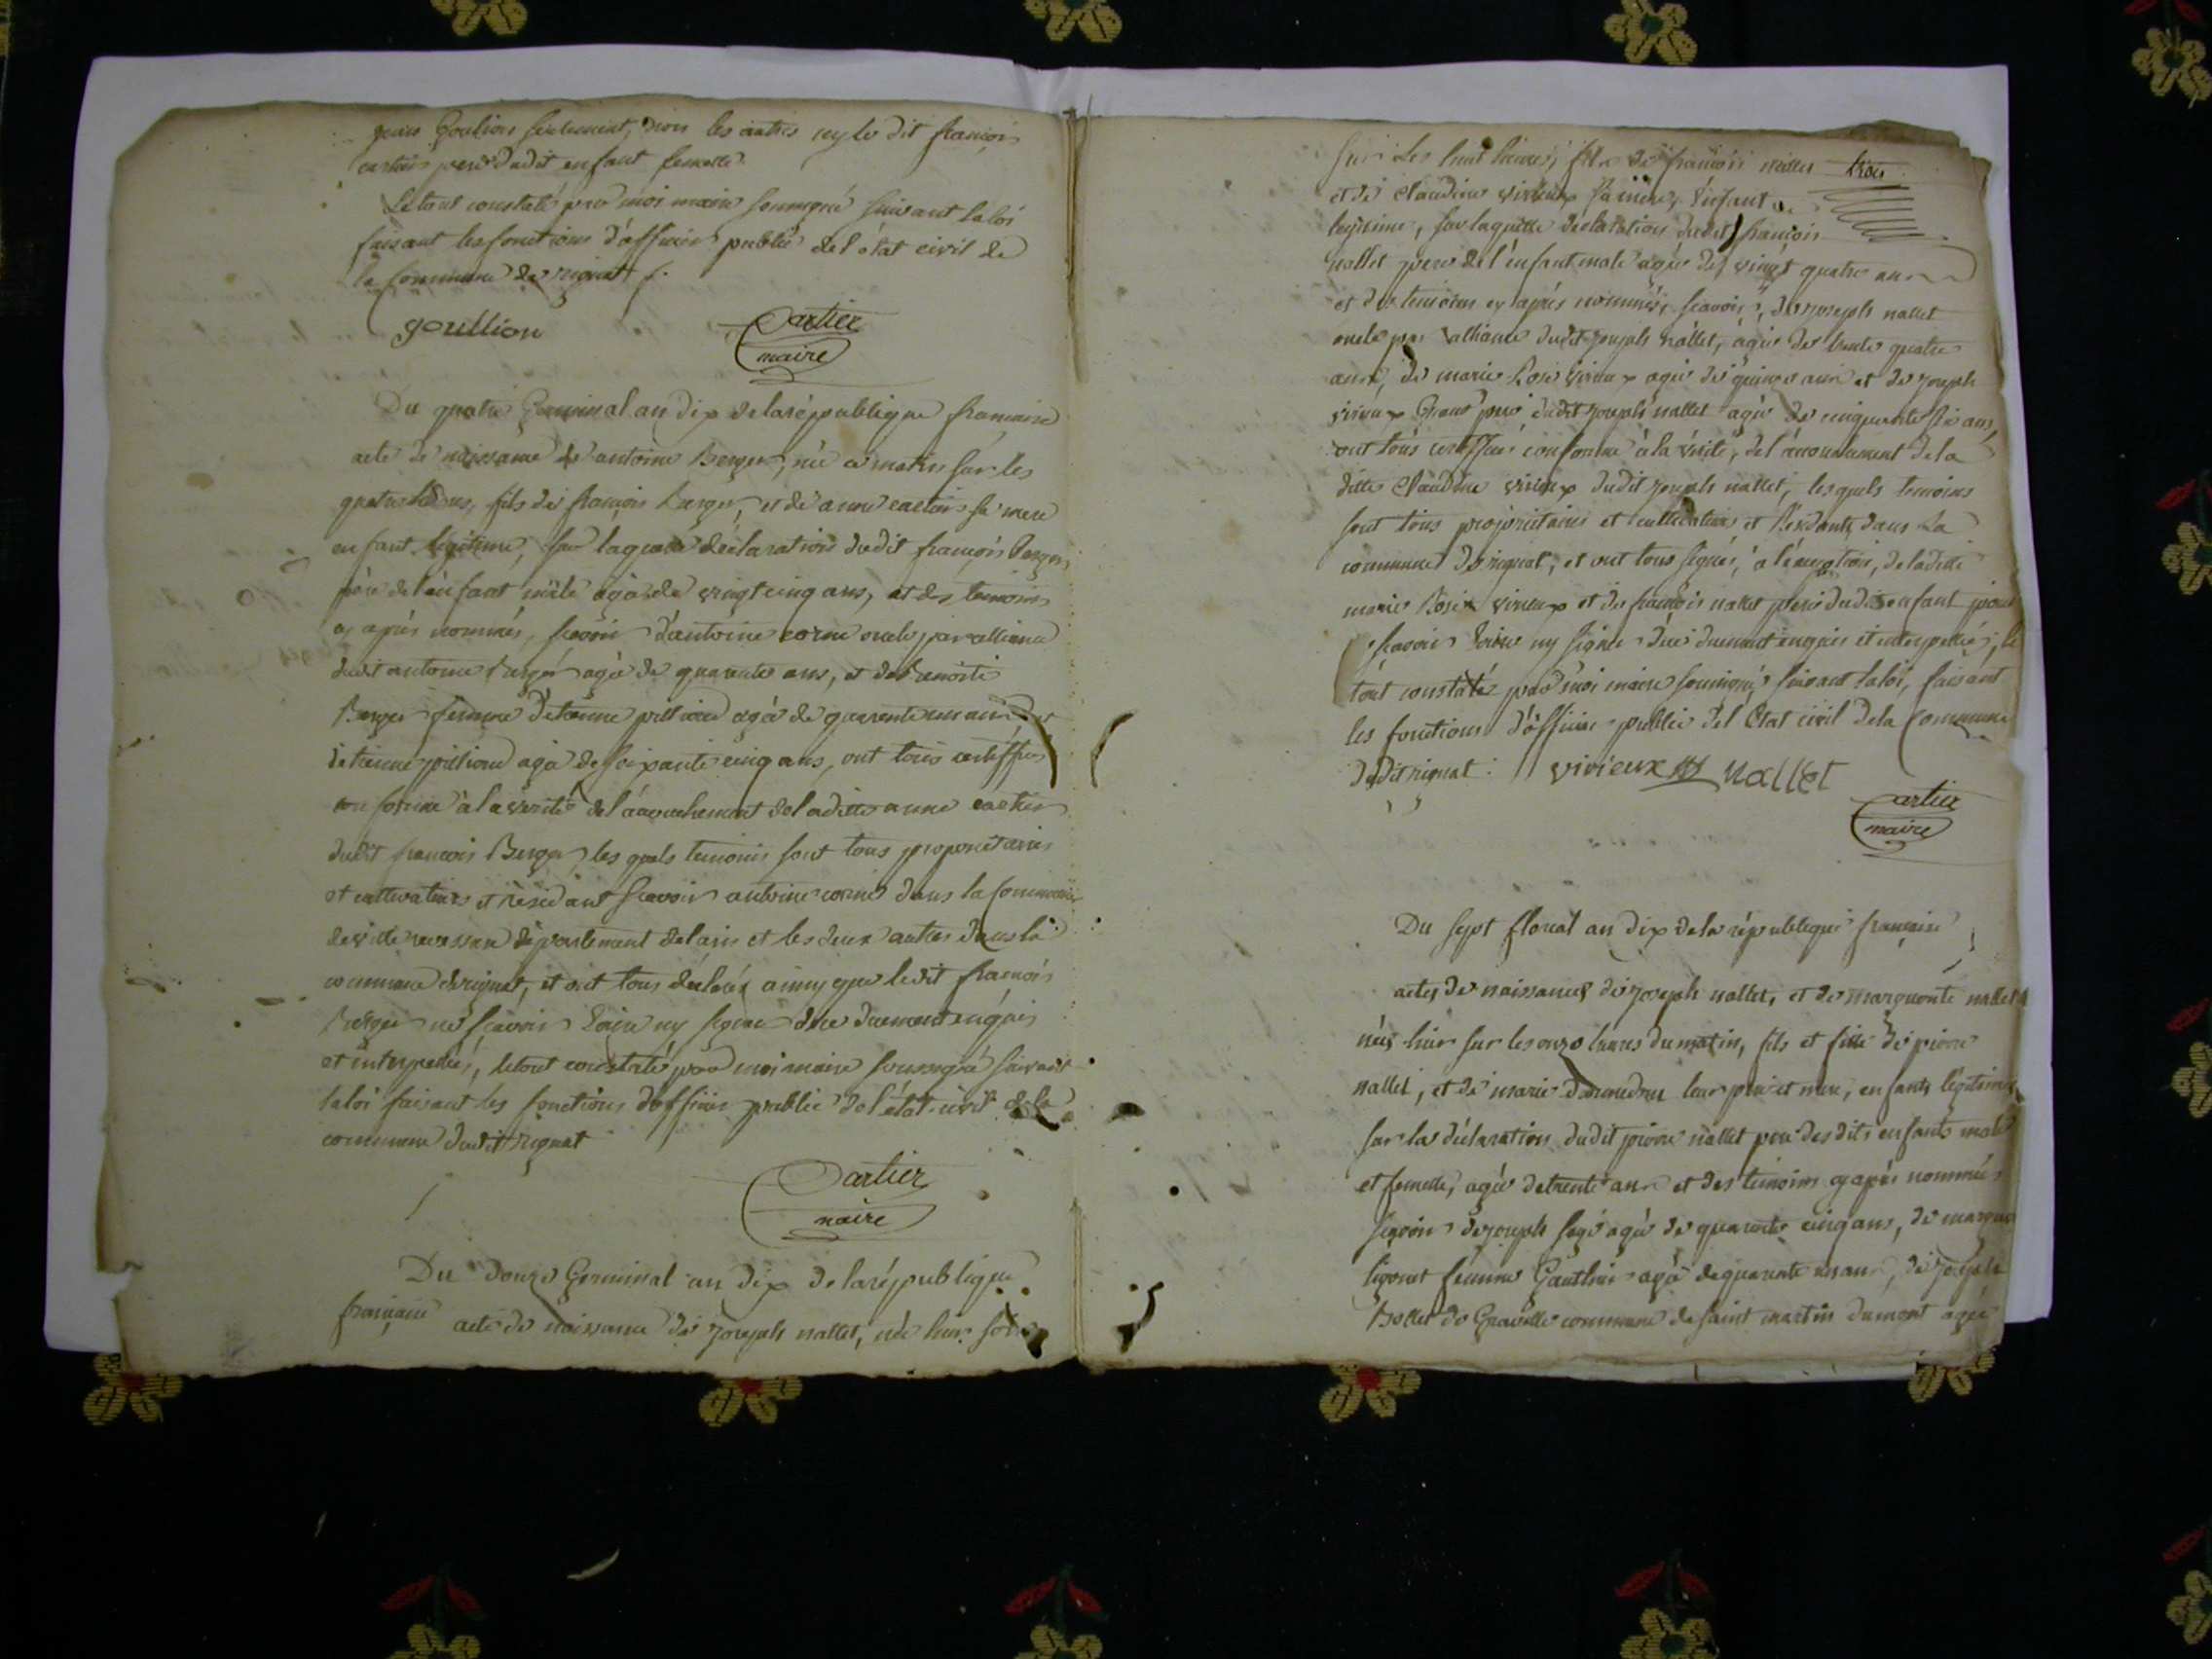 goulion seulement, non les autres ny le dit francois
cartier pere dudit enfant femelle.
Le tout constaté par moi maire soussigné suivant la loi
faisant les fonctions d'officier public de l'état civil de
la commune de rignat
goullion Cartier
maire
Du quatre Germinal an dix de la république francaise
acte de naissance de antoine Berger, née ce matin sur les
quatre heures, fils de francois Berger, et de anne cartier sa mere
enfant legitime, sur laquelle déclaration dudit francois Berger
père de l'enfant mâle agé de vingt cinq ans, et des temoins
cy après nommés, scavoir d'antoine corme oncle par alliance
dudit antoine Berger agé de quarante ans, et de benoite
Berger femme d'etienne pillion agé de quarente un ans et
d'etienne pillion agé de soixante cinq ans, ont tous certiffier
conforme à la verité de l'accouchement de laditte anne cartier
dudit francois Berger, les quels temoins sont tous proprietaires
et cultivateurs et résidant scavoir antoine corme dans la commune
de ville reversure département de l'ain et les deux autres dans la
commune de rignat, et ont tous déclarés ainsy que ledit francois
Berger ne scavoir Ecrire ny signer de ce duement enquis
et interpellés, le tout constaté par moi maire soussigné suivant
la loi faisant les fonctions d'officier public de l'état civil de la
commune dudit rignat
Cartier
maire
Du douze Germinal an dix de la république
francaise acte de naissance de joseph nallet, née hier soir
sur les huit heures, fils de francois nallet trois
et de Claudine vivieux sa mère, Enfant
legitime, sur laquelle déclaration dudit francois
nallet pere de l'enfant male agé de vingt quatre ans
et des temoins cy après nommés, scavoir, de joseph nallet
oncle par alliance dudit joseph nallet, agé de trente quatre
ans, de marie Rose vivieux agée de quinze ans et de joseph
vivieux Grand père dudit joseph nallet agé de cinquante six ans,
ont tous certiffier conforme à la vérité, de l'accouchement de la
ditte Claudine vivieux dudit joseph nallet, lesquels temoins
sont tous proprietaires et cultivateurs et Residants dans La
commune de rignat, et ont tous signés, à l'éxception, de laditte
marie Rose vivieux et de francois nallet pere dudit enfant pour
scavoir Ecrire ny signer de ce duement enquis et interpellés; le
tout constaté par moi maire soussigné suivant la loi, faisant
les fonctions d'officier public de l'Etat civil de la Commune
dudit rignat. vivieux nallet
Cartier
maire
Du sept floreal an dix de la république francaise
actes de naissances de joseph nallet, et de marguerite nallet
nées hier sur les onze heures du matin, fils et fille de pierre
nallet, et de marie leur pere et mere, enfants légitimes
sur la déclaration dudit pierre nallet pere des dits enfants male
et femelle, agé de trente ans et des temoins cy après nommés
scavoir de joseph agé de quarante cinq ans, de
femme Gauthier agé de quarente un ans, de joseph
Bollet de Gravelle commune de saint martin dumont agée